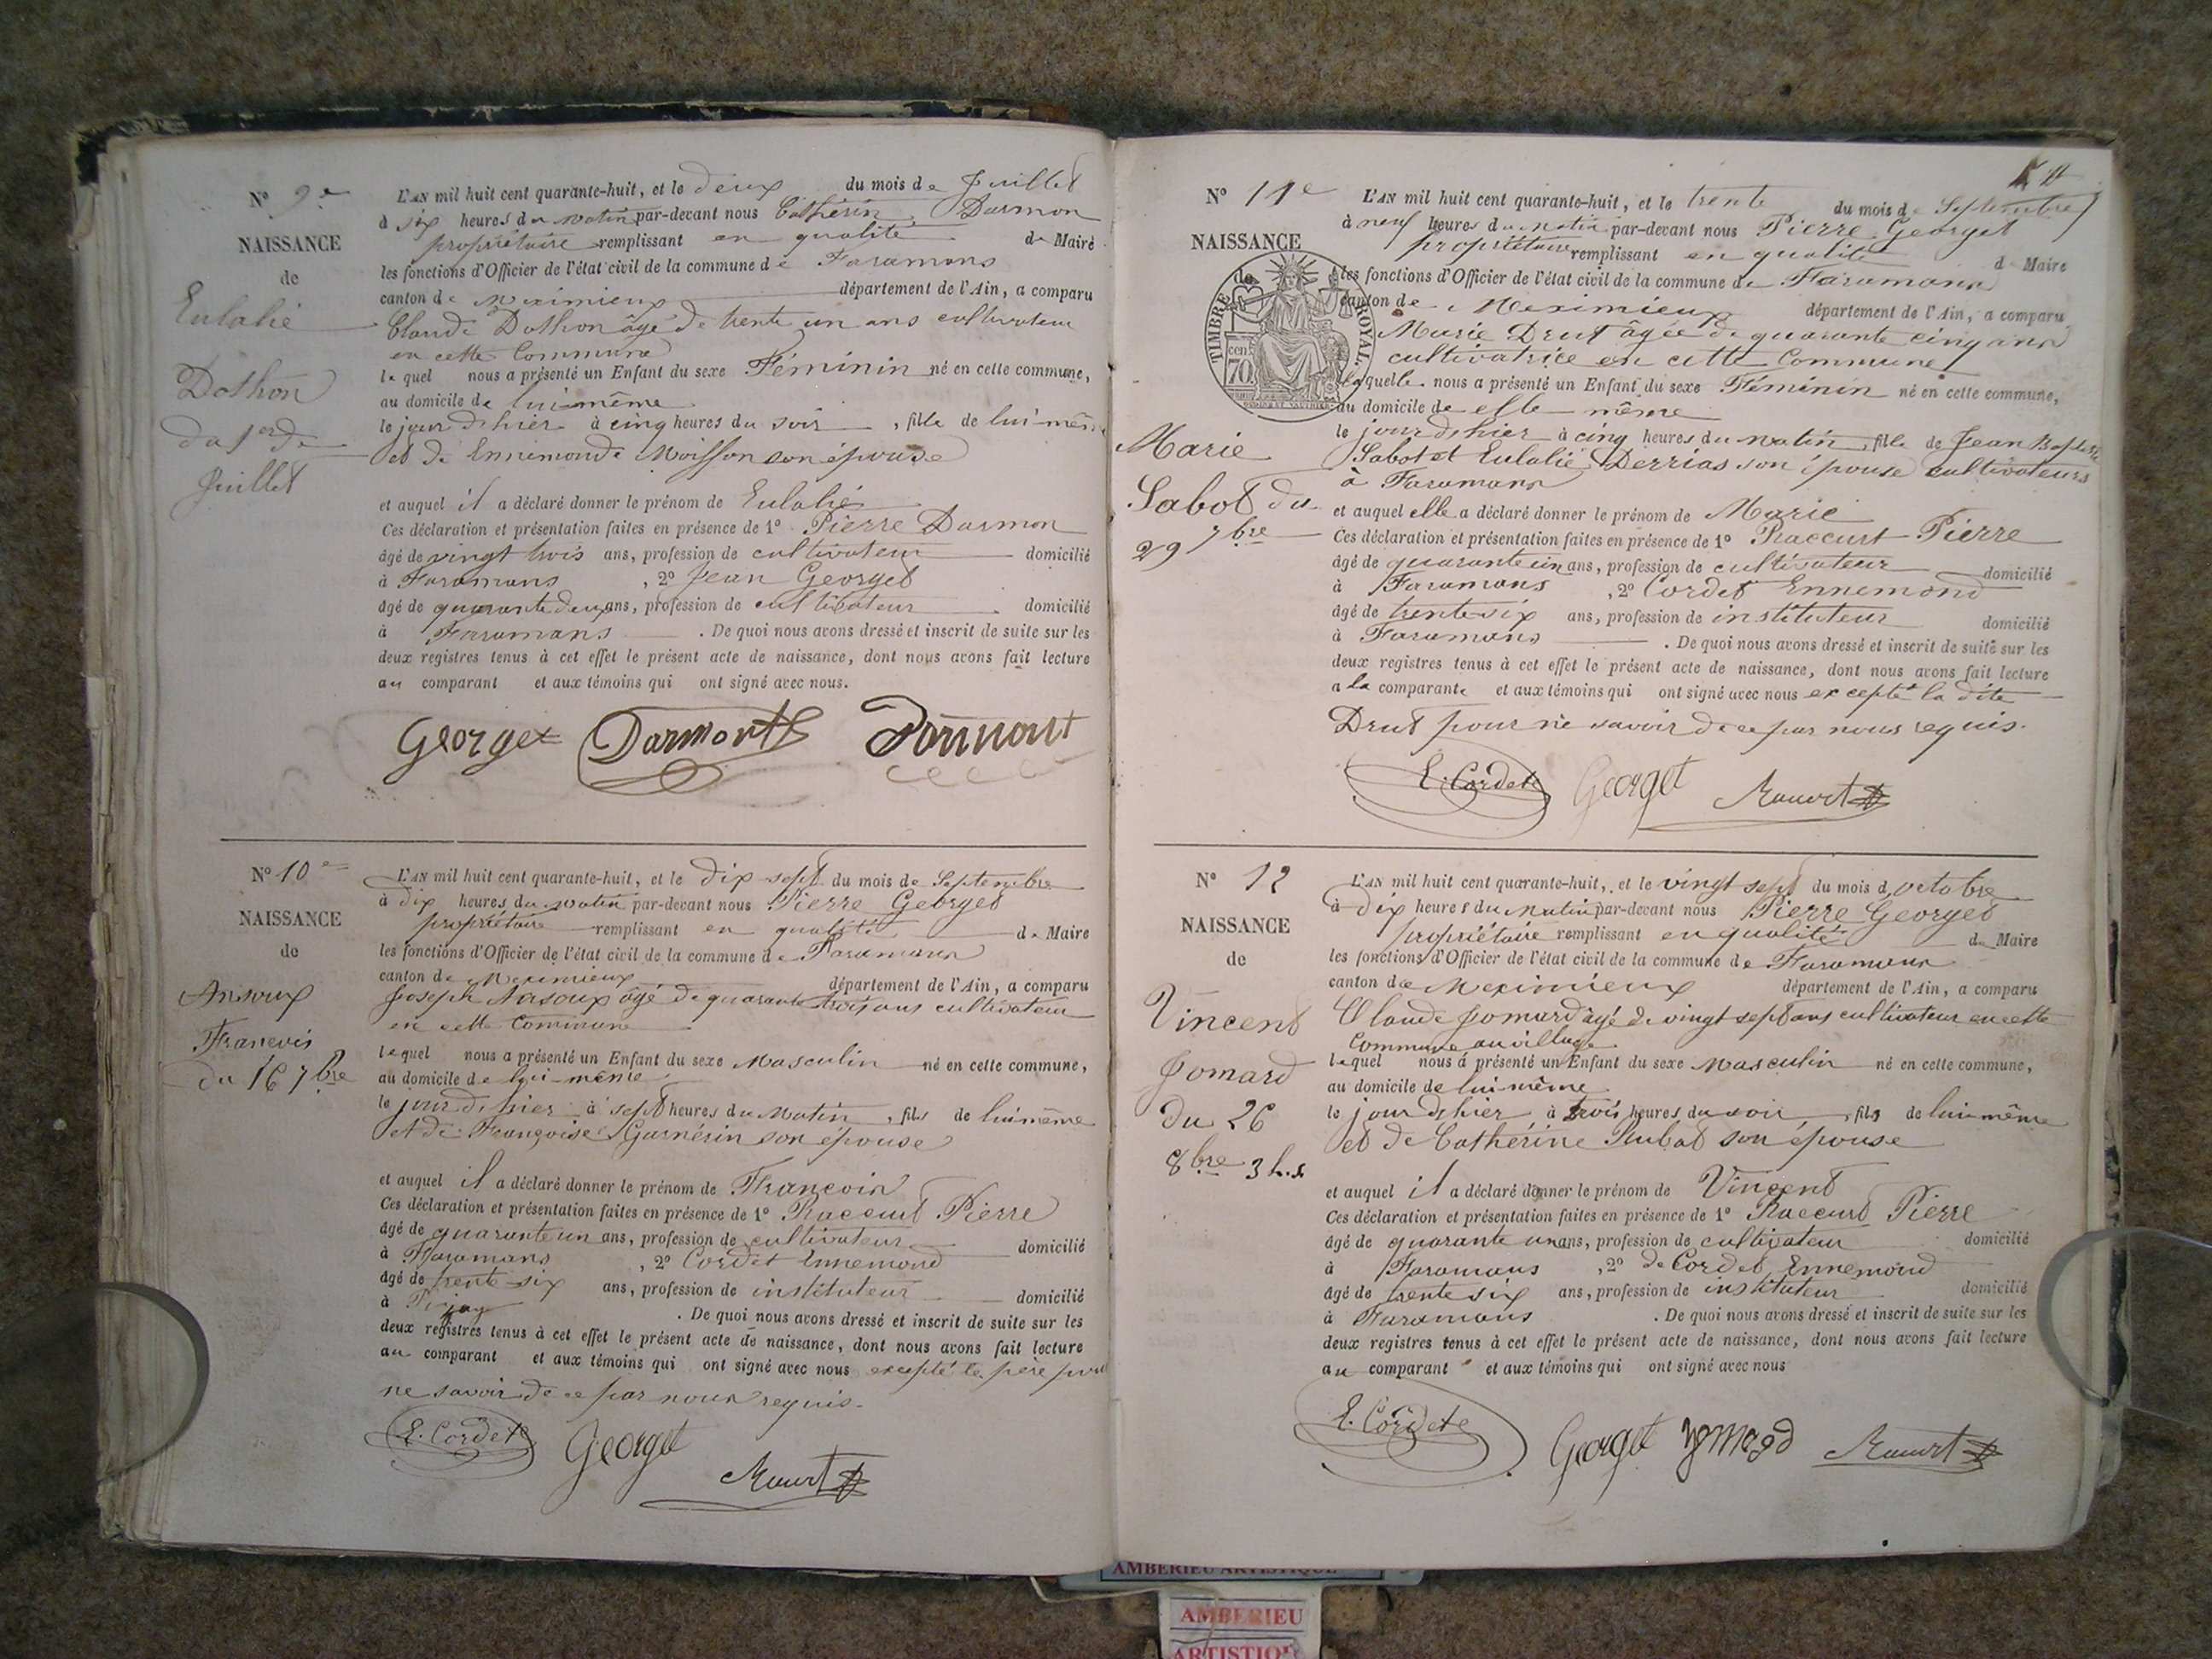 N° 9e
NAISSANCE
de
Eulalie
Dothon
du 1er de
Juillet
L'AN mil huit cent quarante-huit, et le deux du mois de Juillet
à six heures du matin par-devant nous Cathérin Darmon
propriétaire remplissant en qualité de Maire
les fonctions d'Officier de l'état civil de la commune de Faramans
canton de Meximieux département de l'Ain, a comparu
Claude Dothon âgé de trente un ans cultivateur
en cette Commune
lequel nous a présenté un Enfant du sexe Féminin né en cette commune,
au domicile de lui-même
le jour d'hier à cinq heures du soir, fille de lui-même
et de Ennimonde Moisson son épouse
et auquel il a déclaré donner le prénom de Eulalie
Ces déclaration et présentation faites en présence de 1° Pierre Darmon
âgé de vingt trois ans, profession de cultivateur domicilié
à Faramans, 2° Jean Georget
âgé de quarante deux ans, profession de cultivateur domicilié
à Faramans. De quoi nous avons dressé et inscrit de suite sur les
deux registres tenus à cet effet le présent acte de naissance, dont nous avons fait lecture
au comparant et aux témoins qui ont signé avec nous.
Georget Darmont
N° 10e
NAISSANCE
de
Ansoux
Francois
du 16 7bre
L'AN mil huit cent quarante-huit, et le dix sept du mois de Septembre
à dix heures du matin par-devant nous Pierre Georget
propriétaire remplissant en qualité de Maire
les fonctions d'Officier de l'état civil de la commune de Faramans
canton de Meximieux département de l'Ain, a comparu
Joseph Ansoux âgé de quarante trois ans cultivateur
en cette Commune
lequel nous a présenté un Enfant du sexe Masculin né en cette commune,
au domicile de lui-même
le jour d'hier à sept heures du Matin, fils de lui même
et de Françoise Garnérin son épouse
et auquel il a déclaré donner le prénom de Francois
Ces déclaration et présentation faites en présence de 1° Raccurt Pierre
âgé de quarante un ans, profession de cultivateur domicilié
à Faramans, 2° Cordet Ennemond
âgé de trente-six ans, profession de instituteur domicilié
à . De quoi nous avons dressé et inscrit de suite sur les
deux registres tenus à cet effet le présent acte de naissance, dont nous avons fait lecture
au comparant et aux témoins qui ont signé avec nous excepté le père pour
ne savoir de ce par nous requis.
E. Cordet Georget
N° 11e
NAISSANCE
de
TIMBRE ROYAL
cen. 70.
Marie
Sabot du
29 7bre
L'AN mil huit cent quarante-huit, et le trente du mois de Septembre
à neuf heures du matin par-devant nous Pierre Georget
propriétaire remplissant en qualité de Maire
les fonctions d'Officier de l'état civil de la commune de Faramans
canton de Meximieux département de l'Ain, a comparu
Marie Drut âgée de quarante cinq ans
cultivatrice en cette Commune
laquelle nous a présenté un Enfant du sexe Féminin né en cette commune,
au domicile de elle-même
le jour d'hier à cinq heures du matin, fille de Jean Baptiste
Sabot et Eulalie Derrias son épouse cultivateurs
à Faramans
et auquel elle a déclaré donner le prénom de Marie
Ces déclaration et présentation faites en présence de 1° Raccurt Pierre
âgé de quarante un ans, profession de cultivateur domicilié
à Faramans, 2° Cordet Ennemond
âgé de trente-six ans, profession de instituteur domicilié
à Faramans. De quoi nous avons dressé et inscrit de suite sur les
deux registres tenus à cet effet le présent acte de naissance, dont nous avons fait lecture
a la comparante et aux témoins qui ont signé avec nous excepté la dite
Drut pour ne savoir de ce par nous requis.
E. Cordet Georget
N° 12
NAISSANCE
de
Vincent
Jomard
du 26
8bre 3 h. s
L'AN mil huit cent quarante-huit, et le vingt sept du mois d'octobre
à dix heures du Matin par-devant nous Pierre Georget
propriétaire remplissant en qualité de Maire
les fonctions d'Officier de l'état civil de la commune de Faramans
canton de Meximieux département de l'Ain, a comparu
Claude Jomard âgé de vingt sept ans cultivateur en cette
Commune au village
lequel nous a présenté un Enfant du sexe Masculin né en cette commune,
au domicile de lui-même
le jour d'hier à trois heures du soir, fils de lui-même
et de Cathérine Rubat son épouse
et auquel il a déclaré donner le prénom de Vincent
Ces déclaration et présentation faites en présence de 1° Raccurt Pierre
âgé de quarante un ans, profession de cultivateur domicilié
à Faramans, 2° de Cordet Ennemond
âgé de trente six ans, profession de instituteur domicilié
à Faramans. De quoi nous avons dressé et inscrit de suite sur les
deux registres tenus à cet effet le présent acte de naissance, dont nous avons fait lecture
au comparant et aux témoins qui ont signé avec nous
E. Cordet Georget
AMBERIEU ARTISTIQUE
AMBERIEU
ARTISTIQUE